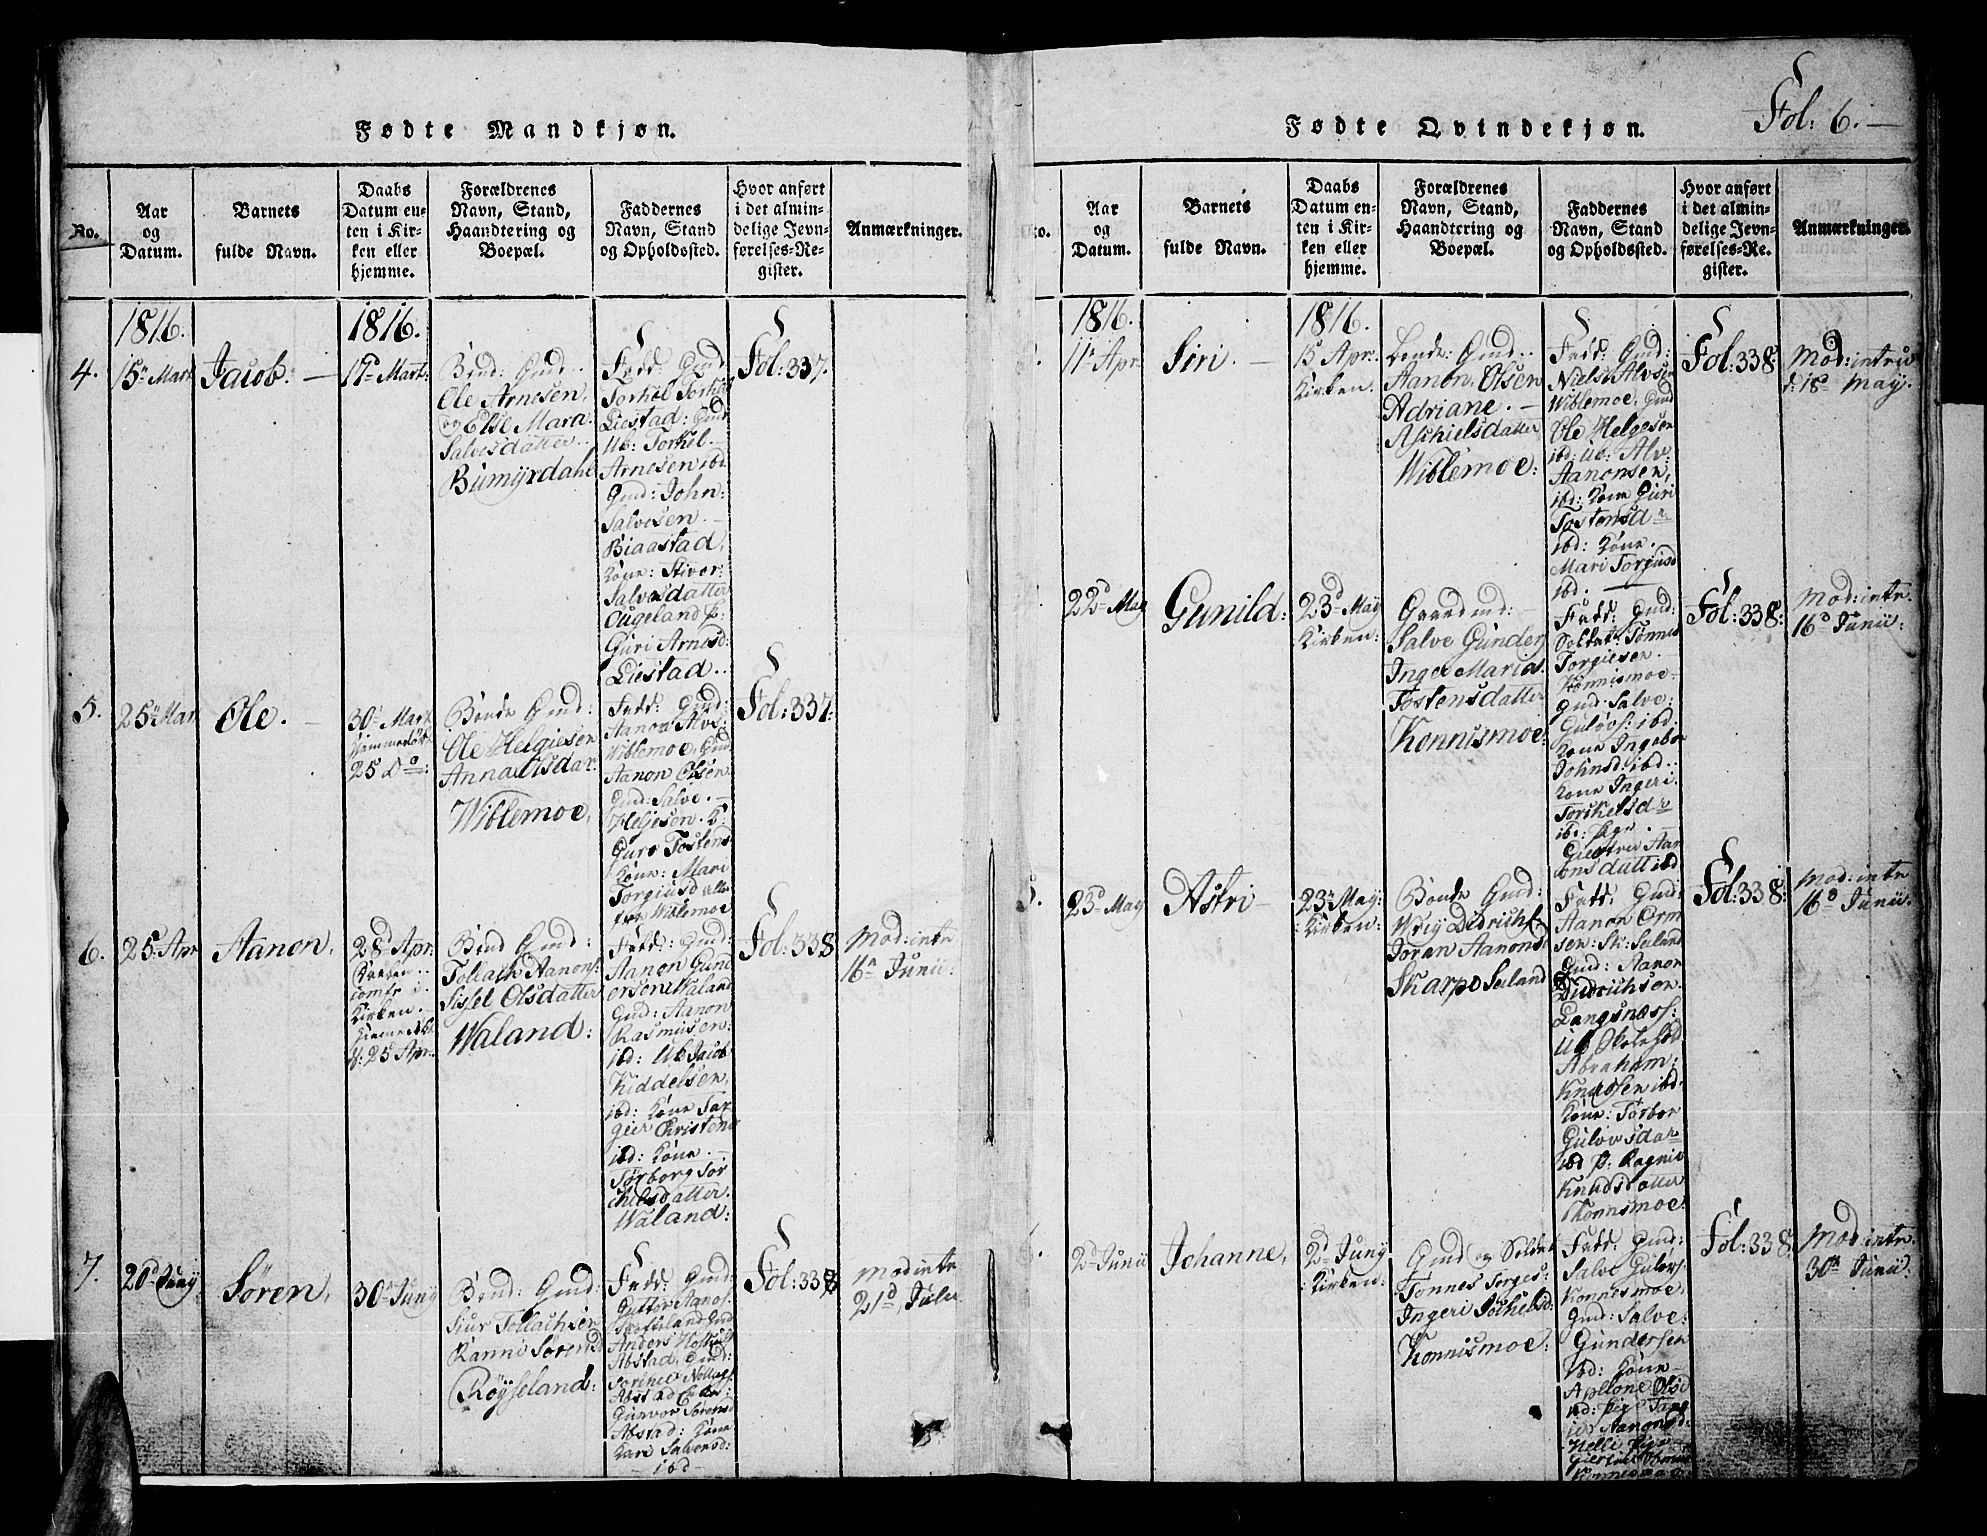 Fødte Mandkjøn.
No.
Aar
og
Datum.
Barnets
fulde Navn.
Daabs
Datum en-
ten i Kir-
ken eller
hjemme.
Forældrenes
Navn, Stand,
Haandtering og
Boepæl.
Faddernes
Navn, Stand
og Opholdssted.
Hvor anført
i det almin-
delige Jevn-
førelses-Re-
gister.
Anmærkninger.
1816.
1816.
4.
15de Mart
Jacob.
17de Mart:
Bond: Gmd:
Ole Arnesen,
og Else Mara
Salvesdatter
Bumyrdahl
Fadd: Gmd
Torkel Torkel
Liestad: Gmd
Ub: Torkel
Arnesen ibd
Gmd: John
Salvesen
Biaastad,
Kone: Stivor
Salvesdatter
Ougeland p:
Guri Arnesd:
Liestad.
Fol: 337.
5.
25de Mar
Ole.
30te Mart
Hjemmedøbt
25 do:
Bonde Gmd:
Ole Helgiesen
Anna Olsdar
Wiblemoe,
Fadd: Gmd:
Aanon Alvs:
Wiblemoe, Gmd
Aanon Olsen
Gmd: Salve
Heljesen. K:
Guro Tostens
Kone: Mari
Torgiusd alle
fra Wiblemoe
Fol: 337:
6.
25 Apr
Aanon,
28d Apr:
Kirken.
Hiemmedøbt
d: 25 Apr.
Bond Gmd:
Tollach Aanons:
Sissel Olsdatter
Waland:
Fadd: Gmd:
Aanon Gund
ersen Waland
Gmd: Aanon
Rasmusen:
ibd: Ub Jacob
Kiddelsen,
ibd: Kone Tar
gier Christens
ibd: Kone
Torborg Tor
chelsdatter
Waland:
Fol: 338
Mod: intr
16de Junii:
7.
20d Juny
Søren,
30te Juny
Bond: Gmd:
Siur Tollachsen
Ranni Sørensd
Røyseland:
Fadd: Gmd:
Guttor Aanos:
Gmd
Anders
Abstad, Gmd:
Abstad
Gunvor Sørensd
Abstad: Kone
Kari Salvensd:
ibd
Fol: 338
Mod intr
21d Julii
Fødte Qvindekjøn.
Fol: 6.
No.
Aar
og
Datum.
Barnets
fulde Navn.
Daabs
Datum en-
ten i Kir-
ken eller
hjemme.
Forældrenes
Navn, Stand,
Haandtering og
Boepæl.
Faddernes
Navn, Stand
og Opholdssted.
Hvor anført
i det almin-
delige Jevn-
førelses-Re-
gister.
Anmærkninger.
1816.
1816.
11te Apr
Siri.
15 Apr:
Kirken.
Bonde: Gmd.
Aanon Olsen
Adriane.
Aschielsdatter
Wiblemoe:
Fadd: Gmd:
Niels Alvsen
Wiblemoe, Gmd
Ole Helgesen
ibd: Ub: Alv:
Aanonsen,
ibd: Kone Guri
Tostensdr
ibd: Kone.
Mari Torgiusd
ibd.
Fol: 338
Mod: intrid
d: 18de May.
22d May
Gunild:
23d May
Kirken:
Gaardmd:
Salve Gunders
Inger Marie
Tostensdatter
Konnismoe:
Fadd: Gmd:
Soldat: Tønnes
Torgiesen
Konnismoe
Gmd: Salve:
Guløvs: ibd:
Kone Ingebor
Johnsd: ibd.
Kone Ingeri
Torkelsdr
ibd: pige
Giertrue Aan
onsdatt ibd
Fol: 338:
Mod: intr.
16d Junii:
23d May
Astri
23de May:
Kirken:
Bonde Gmd:
Wriy Didrichs:
Joran Aanonsd
Skarpe Seiland
Fadd: Gmd
Aanon Orm
sen: Sk: Seiland
Gmd: Aanon
Didrichsen
Langnæss:
Ub Skolehold
Abraham:
Knudsen ibd:
Kone: Torbor
Guløvsdar
ibd p: Ragnil
Knudsdatter
Konnismoe:
Fol: 338:
Mod: intr
16d Junii:
2d Junii
Johanne,
2d Juny
Kirken:
Gmd og Soldat
Tønnes Torges:
Ingeri Tolchelsd:
Konnismoe:
Fadd: Gmd:
Salve Guløvs
Konnismoe,
Gmd: Salve:
Gundersen
ibd: Kone
Apllone Olsd
ibd: pige
Aanonsd
Fol: 338.
Mod: intr.
30te Junii: